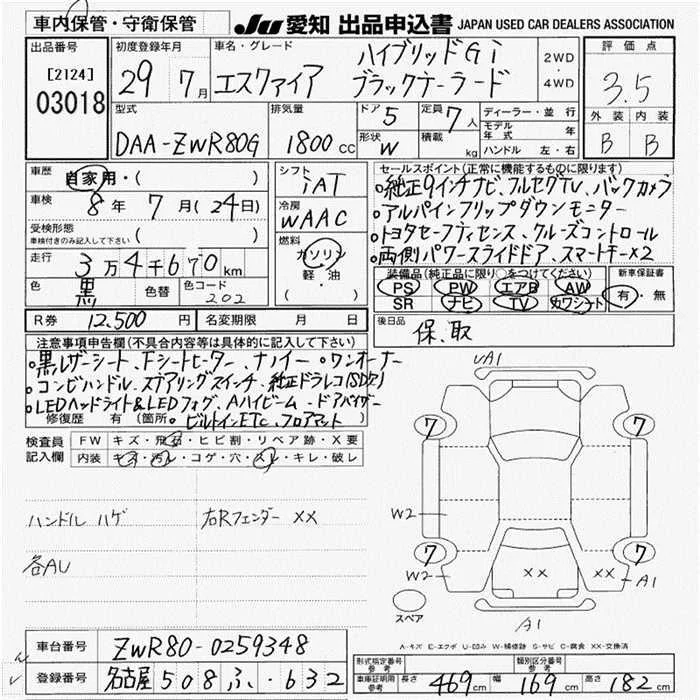 車内保管・守衛保管
JU 愛知 出品申込書 JAPAN USED CAR DEALERS ASSOCIATION
出品番号
[2124]
03018
初度登録年月
29 7月
車名・グレード
ハイブリッドGi
エスクァイア ブラックテーラード
2WD
・
4WD
評価点
3.5
外装 内装
B B
型式
DAA-ZWR80G
排気量
1800cc
ドア 5
形状 W
定員 7人
積載 kg
ディーラー・並行
モデル年式 年
ハンドル 左・右
車歴 自家用・( )
車検 8年 7月(24日)
受検形態
車検付きのみ記入して下さい ( )
走行 3万4千670km
色 黒 色替 色コード 202
シフト
iAT
冷房
WAAC
燃料
ガソリン
軽・油
( )
R券 12,500円 名変期限 月 日
セールスポイント(正常に機能するものに限ります)
・純正9インチナビ、フルセグTV、バックカメラ
・アルパインフリップダウンモニター
・トヨタセーフティセンス、クルーズコントロール
・両側パワースライドドア、スマートキー×2
装備品(純正品に限り○をつけてください)
PS PW エアB AW
SR ナビ TV カワシート
新車保証書
有・無
後日品
保、取
注意事項申告欄(不具合内容等は具体的に記入して下さい)
・黒レザーシート、Fシートヒーター、ナノイー ・ワンオーナー
・コンビハンドル、ステアリングスイッチ、純正ドラレコ(SD欠)
・LEDヘッドライト&LEDフォグ、Aハイビーム、ドアバイザー
修復歴 有 (箇所 ・ビルトインETC、フロアマット )
検査員記入欄
FW キズ・飛石・ヒビ割・リペア跡・X要
内装 キズ・汚れ・コゲ・穴・スレ・キレ・破レ
ハンドル ハゲ 右Rフェンダー XX
各AU
UA1
7 7
W2
7 7
W2 XX XX A1
スペア
A1
A-キズ E-エクボ U-凹み W-補修跡 S-サビ C-腐食 XX-交換済
車台番号 ZWR80-0259348
登録番号 名古屋 508 ふ・632
形式指定番号
参考
類別区分番号
参考
車庫証明用
参考
長さ 469cm 幅 169cm 高さ 182cm